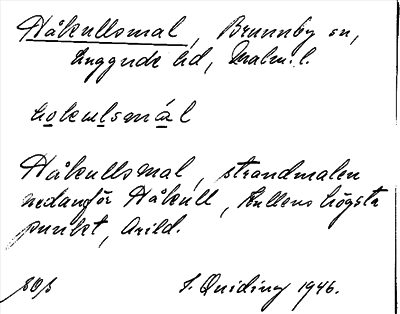 Håkullsmal, Brunnby sn,
Luggude hd, Malm. l.
hokulsmál
Håkullsmal, strandmalen
nedanför Håkull, Kullens högsta
punkt, Arild.
S. Quiding 1946.